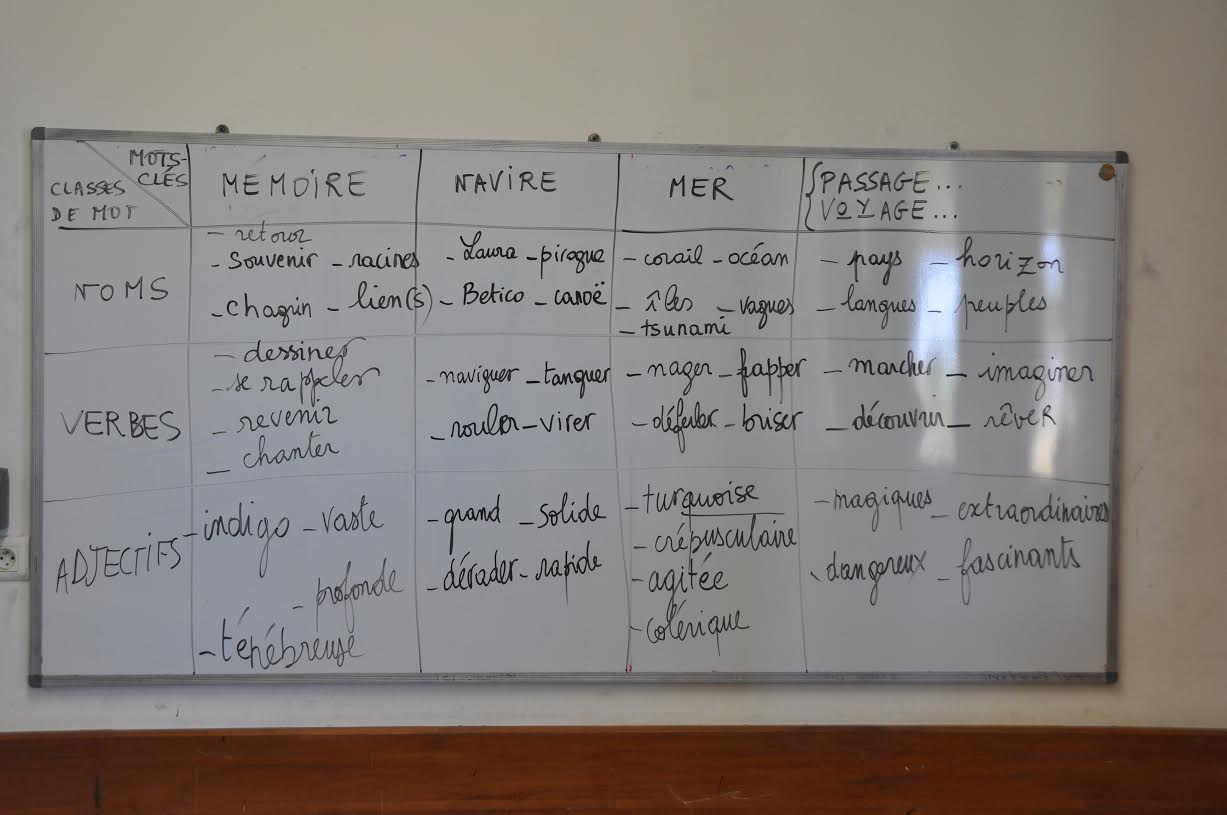 MOTS-CLÉS
CLASSES DE MOT
MEMOIRE
NAVIRE
MER
PASSAGE...
VOYAGE...
NOMS
- retour
- souvenir - racines
- chagrin - lien(s)
- Laura - pirogue
- Betico - canoë
- corail - océan
- îles - vagues
- tsunami
- pays - horizon
- langues - peuples
VERBES
- dessiner
- se rappeler
- revenir
- chanter
- naviguer - tanguer
- rouler - virer
- nager - frapper
- déferler - briser
- marcher - imaginer
- découvrir - rêver
ADJECTIFS
- indigo - vaste
- profonde
- ténébreuse
- grand - solide
- dérader - rapide
- turquoise
- crépusculaire
- agitée
- colérique
- magiques - extraordinaires
- dangereux - fascinants